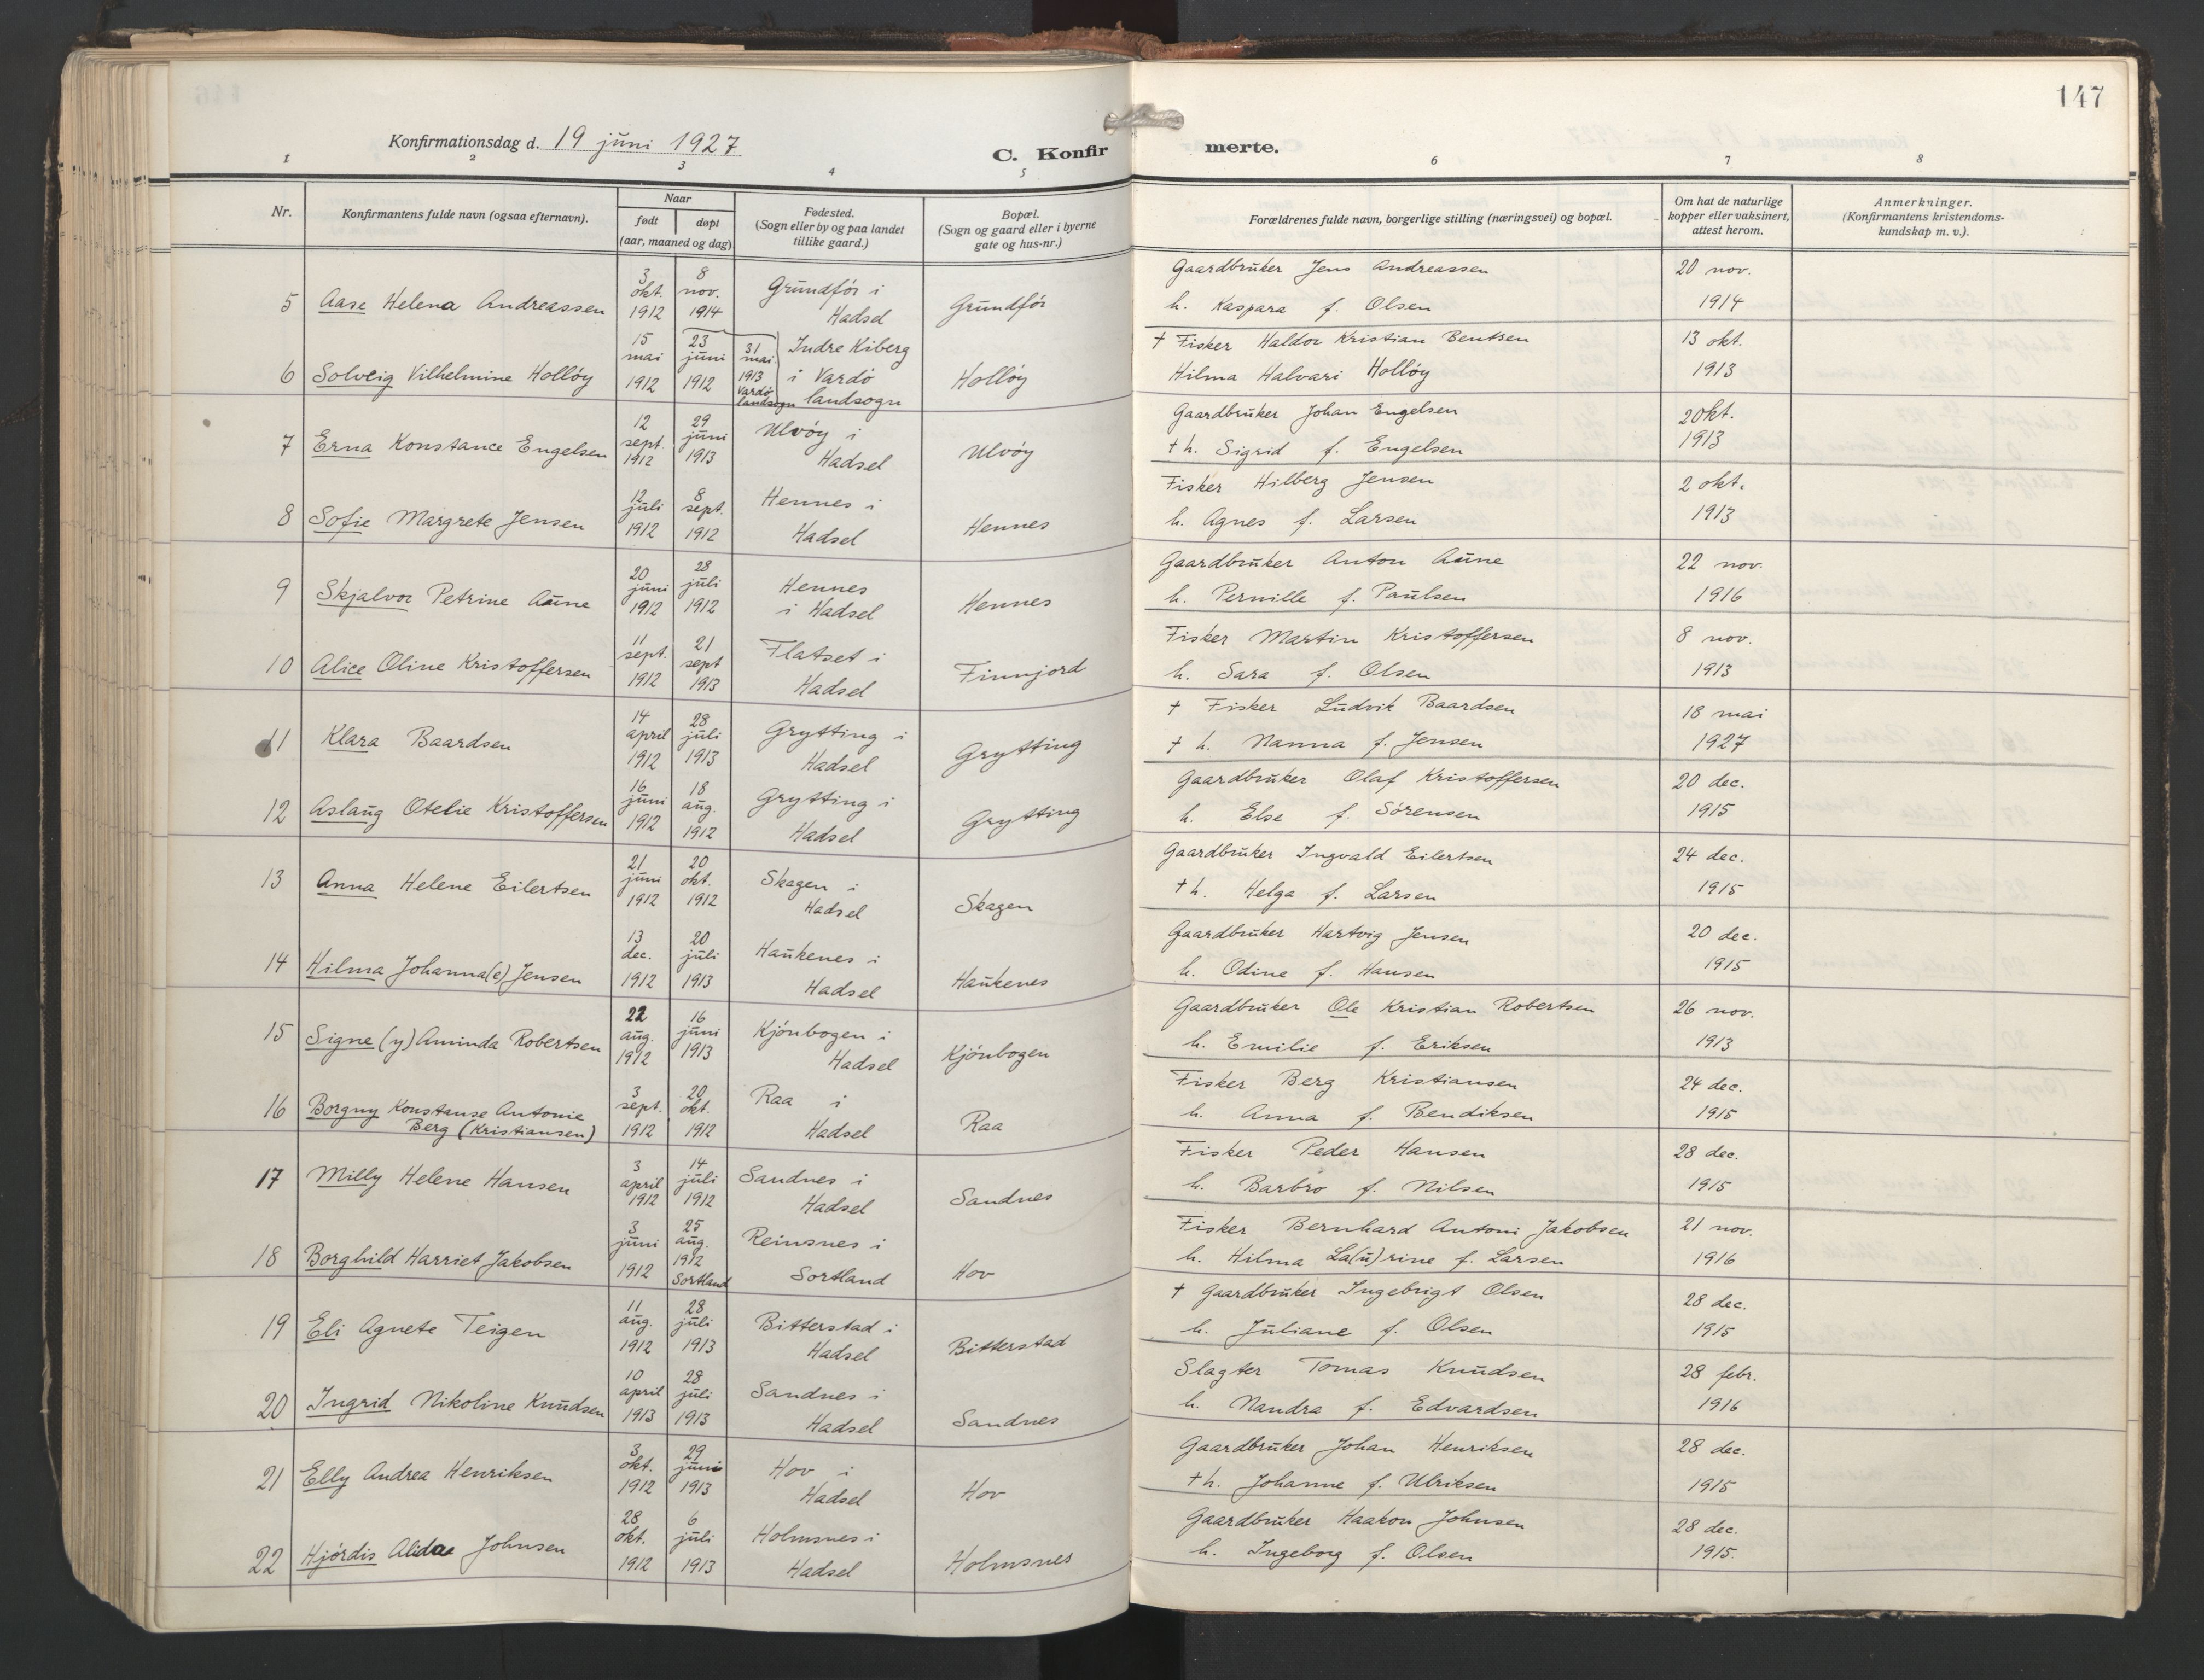 147
Konfirmationsdag d. 19 juni 1927
C. Konfirmerte.
1 2 3 4 5 6 7 8
Nr. Konfirmantens fulde navn (ogsaa efternavn). Naar født døpt (aar, maaned og dag) Fødested. (Sogn eller by og paa landet tillike gaard.) Bopæl. (Sogn og gaard eller i byerne gate og hus-nr.) Forældrenes fulde navn, borgerlige stilling (næringsvei) og bopæl. Om hat de naturlige kopper eller vaksinert, attest herom. Anmerkninger. (Konfirmantens kristendomskundskap m. v.).
5 Aase Helena Andreassen 3 okt. 1912 8 nov. 1914 Grundfør i Hadsel Grundfør Gaardbruker Jens Andreassen h. Kaspara f. Olsen 20 nov. 1914
6 Solveig Vilhelmine Holløy 15 mai 1912 23 juni 1912 31 mai 1913 Vardø landsogn Indre Kiberg i Vardø landsogn Holløy † Fisker Haldor Kristian Bentsen Hilma Halvari Holløy 13 okt. 1913
7 Erna Konstance Engelsen 12 sept. 1912 29 juni 1913 Ulvøy i Hadsel Ulvøy Gaardbruker Johan Engelsen † h. Sigrid f. Engelsen 2 okt. 1913
8 Sofie Margrete Jensen 12 juli 1912 8 sept. 1912 Hennes i Hadsel Hennes Fisker Hilberg Jensen h. Agnes f. Larsen 2 okt. 1913
9 Skjalvor Petrine Aune 20 juni 1912 28 juli 1912 Hennes i Hadsel Hennes Gaardbruker Anton Aune h. Pernille f. Paulsen 22 nov. 1916
10 Alice Oline Kristoffersen 11 sept. 1912 21 sept 1913 Flatset i Hadsel Finnjord Fisker Martin Kristoffersen h. Sara f. Olsen 8 nov. 1913
11 Klara Baardsen 14 april 1912 28 juli 1913 Grytting i Hadsel Grytting † Fisker Ludvik Baardsen † h. Nanna f. Jensen 18 mai 1927
12 Aslaug Otelie Kristoffersen 16 juni 1912 18 aug. 1912 Grytting i Hadsel Grytting Gaardbruker Olaf Kristoffersen h. Else f. Sørensen 20 dec. 1915
13 Anna Helene Eilertsen 21 juni 1912 20 okt. 1912 Skagen i Hadsel Skagen Gaardbruker Ingvald Eilertsen † h. Helga f. Larsen 24 dec. 1915
14 Hilma Johanna(e) Jensen 13 dec. 1912 20 juli 1913 Haukenes i Hadsel Haukenes Gaardbruker Hartvig Jensen h. Odine f. Hansen 20 dec. 1915
15 Signe (y) Aminda Robertsen 22 aug. 1912 16 juni 1913 Kjønbogen i Hadsel Kjønbogen Gaardbruker Ole Kristian Robertsen h. Emilie f. Eriksen 26 nov. 1913
16 Borgny Konstanse Antonie Berg (Kristiansen) 3 sept. 1912 20 okt. 1912 Raa i Hadsel Raa Fisker Berg Kristiansen h. Anna f. Bendiksen 24 dec. 1915
17 Milly Helene Hansen 3 april 1912 14 juli 1912 Sandnes i Hadsel Sandnes Fisker Peder Hansen h. Barbro f. Nilsen 28 dec. 1915
18 Borghild Harriet Jakobsen 3 juni 1912 25 aug. 1912 Sortland Reinsnes i Sortland Hov Fisker Bernhard Antoni Jakobsen h. Hilma La(u)rine f. Larsen 21 nov. 1916
19 Eli Agnete Teigen 11 aug. 1912 28 juli 1913 Bitterstad i Hadsel Bitterstad † Gaardbruker Ingebrigt Olsen h. Juliane f. Olsen 28 dec. 1915
20 Ingrid Nikoline Knudsen 10 april 1913 28 juli 1913 Sandnes i Hadsel Sandnes Slagter Tomas Knudsen h. Nandra f. Edvardsen 28 febr. 1916
21 Elly Andrea Henriksen 3 okt. 1912 29 juni 1913 Hov i Hadsel Hov Gaardbruker Johan Henriksen † h. Johanne f. Ulriksen 28 dec. 1915
22 Hjørdis Alida Johnsen 28 okt. 1912 6 juli 1913 Holmsnes i Hadsel Holmsnes Gaardbruker Haakon Johnsen h. Ingeborg f. Olsen 28 dec. 1915.